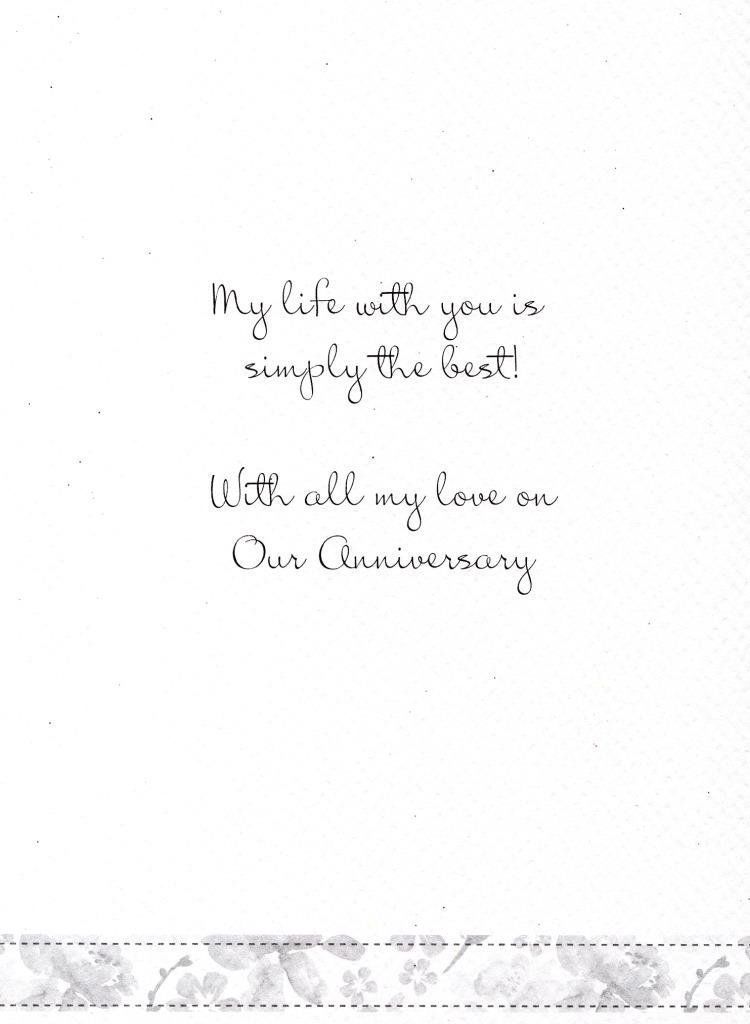 My life with you is
simply the best!
With all my love on
Our Anniversary